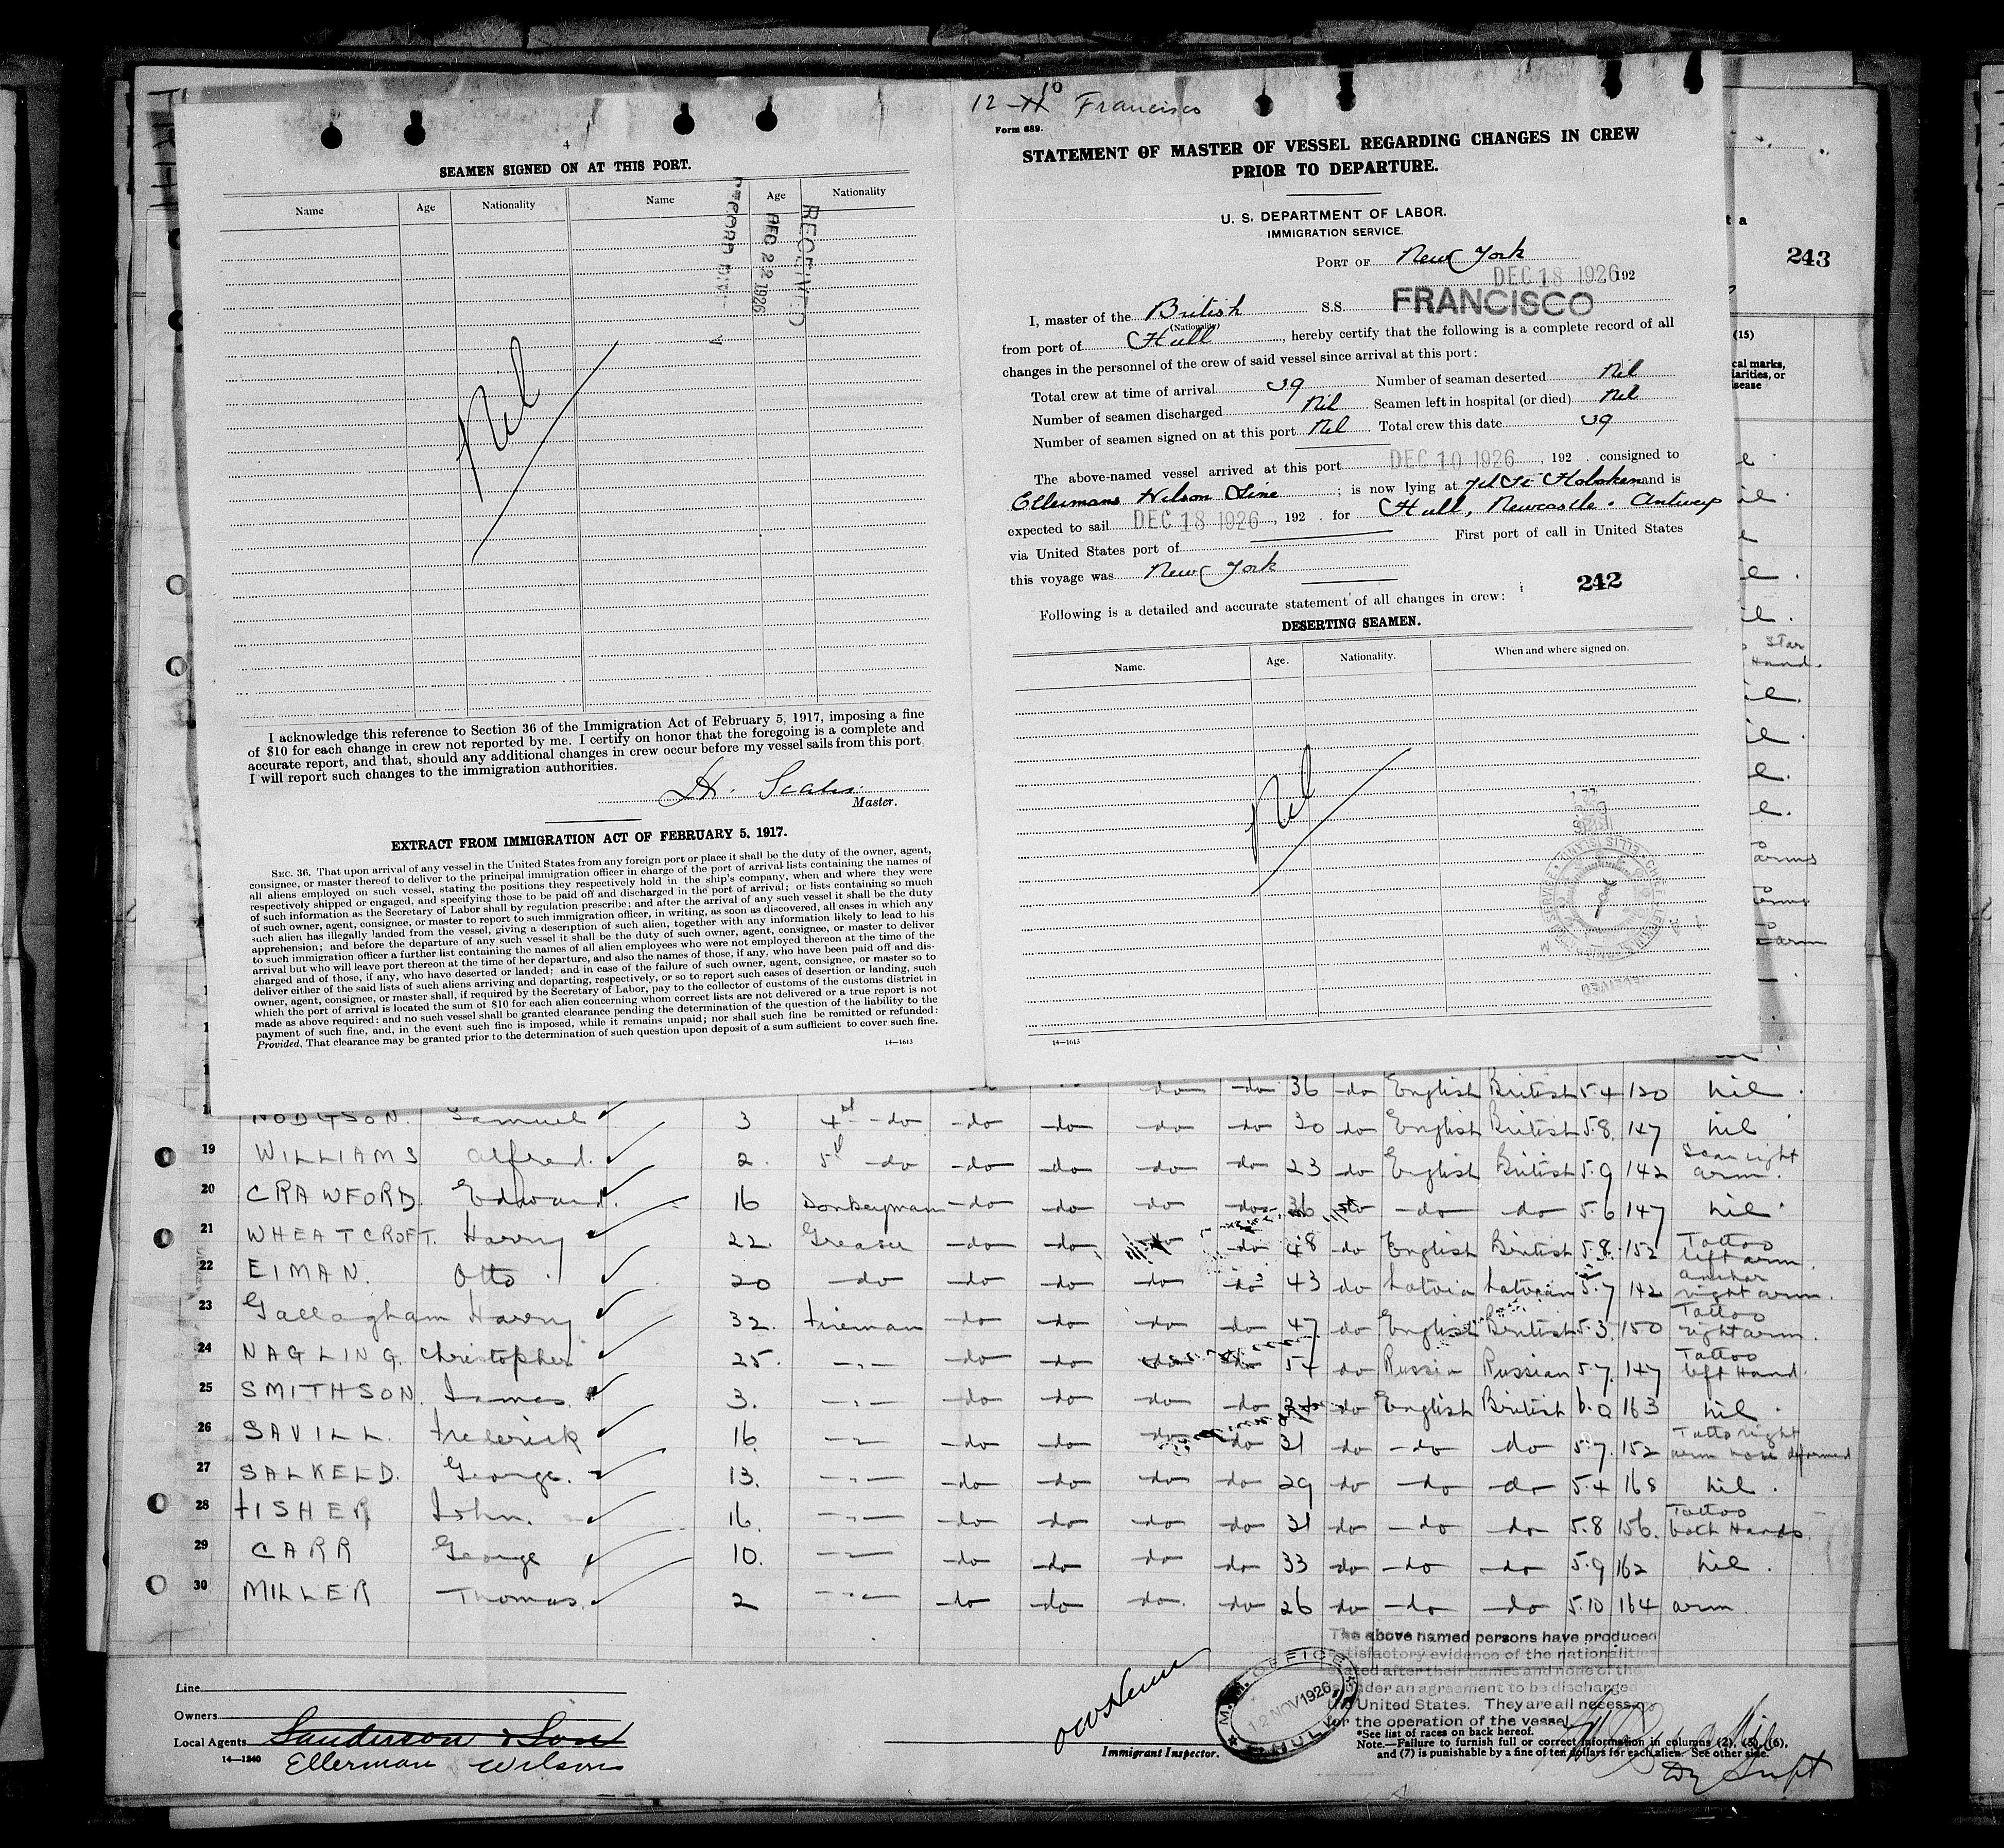 4
SEAMEN SIGNED ON AT THIS PORT.
Name Age Nationality Name Age Nationality
RECEIVED
DEC 22 1926
RECORD DIV.
Nil
I acknowledge this reference to Section 36 of the Immigration Act of February 5, 1917, imposing a fine
of $10 for each change in crew not reported by me. I certify on honor that the foregoing is a complete and
accurate report, and that, should any additional changes in crew occur before my vessel sails from this port,
I will report such changes to the immigration authorities.
H.
Master.
EXTRACT FROM IMMIGRATION ACT OF FEBRUARY 5, 1917.
SEC. 36. That upon arrival of any vessel in the United States from any foreign port or place it shall be the duty of the owner, agent,
consignee, or master thereof to deliver to the principal immigration officer in charge of the port of arrival lists containing the names of
all aliens employed on such vessel, stating the positions they respectively hold in the ship's company, when and where they were
respectively shipped or engaged, and specifying those to be paid off and discharged in the port of arrival; or lists containing so much
of such information as the Secretary of Labor shall by regulation prescribe; and after the arrival of any such vessel it shall be the duty
of such owner, agent, consignee, or master to report to such immigration officer, in writing, as soon as discovered, all cases in which any
such alien has illegally landed from the vessel, giving a description of such alien, together with any information likely to lead to his
apprehension; and before the departure of any such vessel it shall be the duty of such owner, agent, consignee, or master to deliver
to such immigration officer a further list containing the names of all alien employees who were not employed thereon at the time of the
arrival but who will leave port thereon at the time of her departure, and also the names of those, if any, who have been paid off and dis-
charged and of those, if any, who have deserted or landed; and in case of the failure of such owner, agent, consignee, or master so to
deliver either of the said lists of such aliens arriving and departing, respectively, or so to report such cases of desertion or landing, such
owner, agent, consignee, or master shall, if required by the Secretary of Labor, pay to the collector of customs of the customs district in
which the port of arrival is located the sum of $10 for each alien concerning whom correct lists are not delivered or a true report is not
made as above required; and no such vessel shall be granted clearance pending the determination of the question of the liability to the
payment of such fine, and, in the event such fine is imposed, while it remains unpaid; nor shall such fine be remitted or refunded:
Provided, That clearance may be granted prior to the determination of such question upon deposit of a sum sufficient to cover such fine.
14—1613
12 10 Francisco
Form 689.
STATEMENT OF MASTER OF VESSEL REGARDING CHANGES IN CREW
PRIOR TO DEPARTURE.
U. S. DEPARTMENT OF LABOR.
IMMIGRATION SERVICE.
PORT OF New York
DEC 18 1926 192
I, master of the British S.S. FRANCISCO
(Nationality)
from port of Hull, hereby certify that the following is a complete record of all
changes in the personnel of the crew of said vessel since arrival at this port:
Total crew at time of arrival 39 Number of seaman deserted Nil
Number of seamen discharged Nil Seamen left in hospital (or died) Nil
Number of seamen signed on at this port Nil Total crew this date 39
The above-named vessel arrived at this port DEC 10 1926, 192 . consigned to
Ellermans Wilson Line; is now lying at 7th St Hoboken and is
expected to sail DEC 18 1926, 192 . for Hull, Newcastle Antwerp
via United States port of First port of call in United States
this voyage was New York
242
Following is a detailed and accurate statement of all changes in crew:
DESERTING SEAMEN.
Name. Age. Nationality. When and where signed on.
Nil
RECEIVED
14—1613
243
(15)
36 do English British 5.4 130 nil
HODGSON. Samuel 3 4 do do do do do 30 do English British 5.8 147 nil
19 WILLIAMS Alfred. 2. 5 do do do do do 23 do English British 5.9 142 Scar right arm.
20 CRAWFORD. Edward. 16 Donkeyman do do do do 36 do do do 5.6 147 nil
21 WHEATCROFT. Harry 22 Greaser do do do do 48 do English British 5.8. 152 Tattoo left arm.
22 EIMAN. Otto 20 do do do do do 43 do Latvia Latvian 5.7 142 anchor right arm.
23 Gallagham Harry 32. Fireman do do do do 47 do English British 5.3 150 Tattoo right arm.
24 NAGLING. Christopher 25. do do do do 54 do Russia Russian 5.7. 147 Tattoo left Hand.
25 SMITHSON James 3. do do do do do English British 6.0 163 nil
26 SAVILL. Frederick 16 do do do do 31 do do do 5.7. 152 Tatto right arm nose deformed
27 SALKELD. George. 13. do do do do 29 do do do 5.4 168 nil.
28 FISHER John. 16. do do do do 31 do do do 5.8 156. Tattoo both Hands.
29 CARR George 10. do do do do 33 do do do 5.9 162 nil.
30 MILLER Thomas. 2 do do do do 26 do do do 5.10 164 arm.
The above named persons have produced
satisfactory evidence of the nationalities
stated after their names and none of the
under an agreement to be discharged
United States. They are all necess
for the operation of the vessel
Line
Owners
Local Agents Sanderson & Son
Ellerman Wilson
14—1240
Immigrant Inspector.
M. M. OFFICE
12 NOV 1926
HULL
*See list of races on back hereof.
Note.—Failure to furnish full or correct information in columns (2), (5), (6),
and (7) is punishable by a fine of ten dollars for each alien. See other side.
Dy Supt